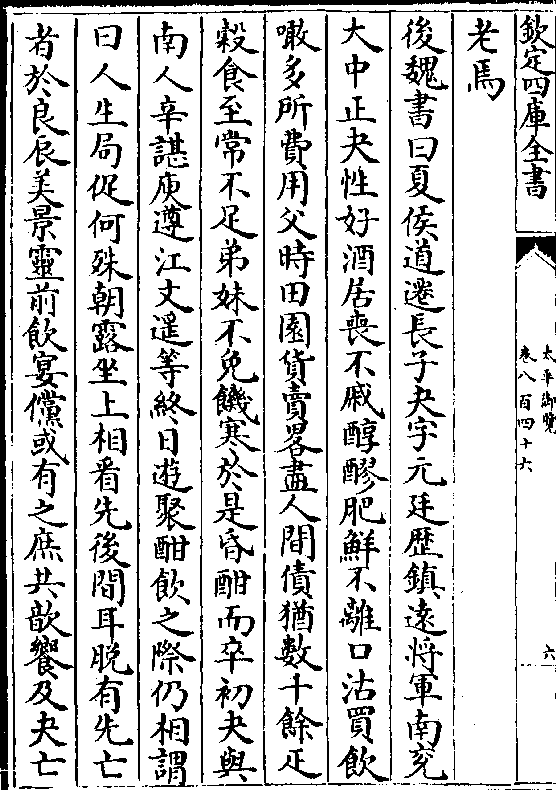 欽定四庫全書
太平御覽
卷八百四十六
六
老焉
後魏書曰夏侯道遷長子夬字元廷歴鎮遠將軍南兖
大中正夬性好酒居喪不戚醇醪肥鮮不離口沽買飲
噉多所費用父時田園貨賣畧盡人間債猶數十餘疋
穀食至常不足弟妹不免饑寒於是昏酣而卒初夬與
南人辛諶庾遵江文遥等終日遊聚酣飲之際仍相謂
曰人生局促何殊朝露坐上相看先後間耳脱有先亡
者於良辰美景靈前飲宴儻或有之庶共歆饗及夬亡